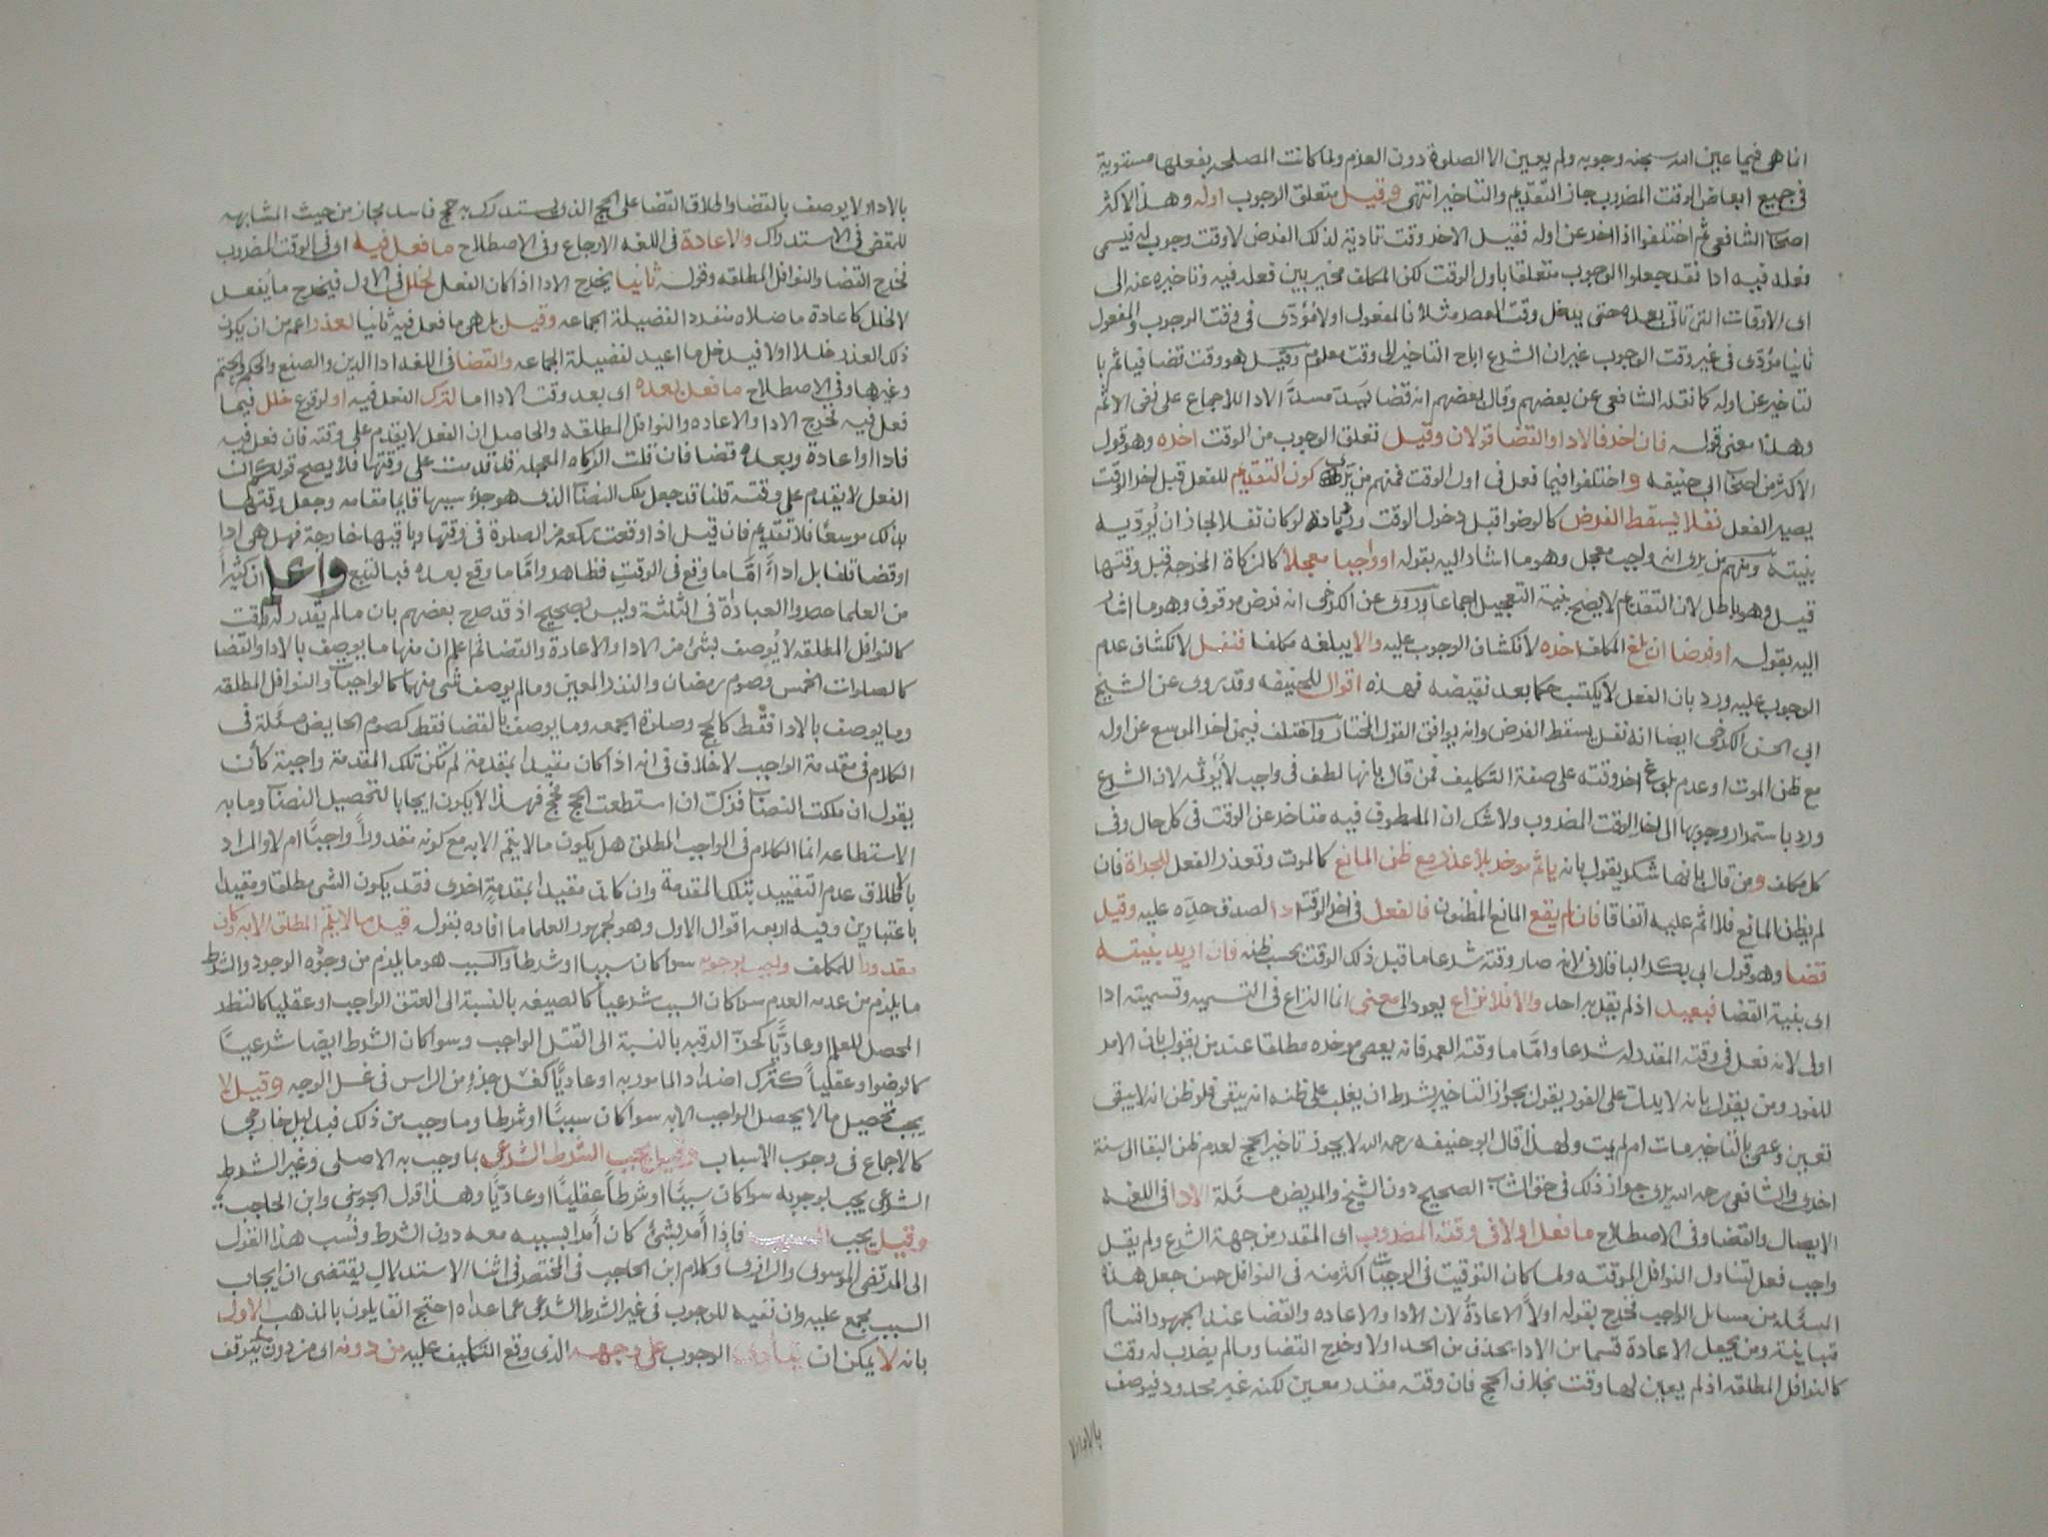 انما هي فيما عين الله سبحنه وجوبه ولم يعين الا الصلوة دون العزم ولما كانت المصلحه بفعلها مستوية
في جميع ابعاض الوقت المضروب جاز التقديم والتاخير انتهى وقيل متعلق الوجوب اوله وهذا لاكثر
اصحاب الشافعي ثم اختلفوا اذا اخر عن اوله فقيل الاخر وقت تمادية لذلك الفرض لا وقت وجوب له فيسمى
فعله فيه ادا فقد جعلوا الوجوب متعلقا باول الوقت لكن المكلف مخير بين فعله فيه وتاخيره عنه الى
اي الاوقات التي تاتي بعده حتى يدخل وقت العصر مثلا فالمفعول اولا مؤدى في وقت الوجوب والمفعول
ثانيا مؤدى في غير وقت الوجوب غير ان الشرع اباح التاخير الى وقت معلوم وقيل هو وقت قضا فياثم با
لتاخير عن اوله كما نقله الشافعي عن بعضهم وقال بعضهم انه قضا يسد مسد الادا للاجماع على نفي الاثم
وهذا معنى قوله فان اخر فالادا والقضا قولان وقيل تعلق الوجوب من الوقت اخره وهو قول
الاكثر من اصحاب ابي حنيفه واختلفوا فيما فعل في اول الوقت فمنهم من يرى كون التقديم للفعل قبل اخر الوقت
يصير الفعل نفلا يسقط الفرض كالوضوا قبل دخول الوقت ورد بانه لو كان نفلا لجاز ان يُودّيه
بنيته ومنهم من يرى انه واجب معجل وهو ما اشار اليه بقوله او واجبا معجلا كالزكاة المخرجة قبل وقتها
قيل وهو باطل لان التقديم لا يصح بنية التعجيل اجماعا وروى عن الكرخي انه فرض موقوف وهو ما اشار
اليه بقوله او فرضا ان بلغ المكلف اخره لانكشاف الوجوب عليه والا يبلغه مكلفا فنفل لانكشاف عدم
الوجوب عليه ورد بان الفعل لا يكتسب حكما بعد نقيضه فهذه اقوال للحنيفه وقد روى عن الشيخ
ابي الحسن الكرخي ايضا انه نفل يسقط الفرض وانه يوافق القول المختار واختلف فيمن اخر الموسع عن اوله
مع ظن الموت او عدم بلوغ اخر وقته على صفة التكليف فمن قال بانها لطف في واجب لا يُوثمه لان الشرع
ورد باستمرار وجوبها الى اخر الوقت المضروب ولا شك ان الملطوف فيه متاخر عن الوقت في كل حال وفي
كل مكلف ومن قال بانها شكر يقول بانه ياثم موخر بلا عذر مع ظن المانع كالموت وتعذر الفعل للجراة فان
لم يظن المانع فلا اثم عليه اتفاقا فان لم يقع المانع المظنون فالفعل في اخر الوقت ادا لصدق حدّه عليه وقيل
قضا وهو قول ابي بكر الباقلاني لانه صار وقته شرعا ما قبل ذلك الوقت بحسب ظنه فان اريد بنيته
اي بنية القضا فبعيد اذ لم يقل به احد والا فلا نزاع يعود الى معنى انما النزاع في التسميه وتسميته ادا
اولى لانه فعل في وقته المقدر له شرعا وامّا ما وقته العمر فانه يعصى موخره مطلقا عند من يقول بان الامر
للفور ومن يقول بانه لا يدل على الفور يقول بجواز التاخير بشرط ان يغلب على ظنه انه يبقى فلو ظن انه لا يبقى
تعين وعصى بالتاخير مات ام لم يمت ولهذا قال ابو حنيفه رحمه الله لا يجوز تاخير الحج لعدم ظن البقا الى سنة
اخرى والشافعي رحمه الله يرى جواز ذلك في حق الشاب الصحيح دون الشيخ والمريض مسئلة الادا في اللغه
الايصال والقضا وفي الاصطلاح ما فعل اولا في وقته المضروب اي المقدر من جهة الشرع ولم يقل
واجب فعل لتناول النوافل الموقته ولما كان التوقيت في الواجبات اكثر منه في النوافل حسن جعل هذه
المسئله من مسائل الواجب فخرج بقوله اولاً الاعادةُ لان الادا والاعاده والقضا عند الجمهور اقسام
متباينة ومن يجعل الاعادة قسما من الادا يحذف من الحد اولا وخرج القضا وما لم يضرب له وقت
كالنوافل المطلقه اذ لم يعين لها وقت بخلاف الحج فان وقته مقدر معين لكنه غير محدود فيوصف
بالادا ولا
بالادا ولا يوصف بالقضا واطلاق القضا على الحج الذي يستدرك به حج فاسد مجاز من حيث المشابهه
للمقضي في الاستدراك والاعادة في اللغه الارجاع وفي الاصطلاح ما فعل فيه اي في الوقت المضروب
فخرج القضا والنوافل المطلقه وقوله ثانيا يخرج الادا اذ اكان الفعل لخلل في الاول فيخرج ما يُفعل
لا لخلل كاعادة ما صلاه منفردا لفضيلة الجماعه وقيل بل هي ما فعل فيه ثانيا لعذر اعم من ان يكون
ذلك العذر خللا اولا فيدخل ما اعيد لفضيلة الجماعه والقضا في اللغه ادا الدين والصنع والحكم والحتم
وغيرها وفي الاصطلاح ما فعل بعده اي بعد وقت الادا اما لترك الفعل فيه او لوقوع خلل فيما
فعل فيه فخرج الادا والاعاده والنوافل المطلقه والحاصل ان الفعل لا يقدم على وقته فان فعل فيه
فادا او اعادة وبعده قضا فان قلت الزكاه المعجله قد قدمت على وقتها فلا يصح قولكم ان
الفعل لا يقدم على وقته قلنا قد جعل ملك النصاب الذي هو جزء سببها قايما مقامه وجعل وقتها
بذلك موسعًا فلا تقديم فان قيل اذا وقعت ركعة من الصلوة في وقتها وباقيها خارجة فهل هي ادا
او قضا قلنا بل اداءً امّا ما وقع في الوقت فظاهر وامّا ما وقع بعده فبالتبع واعلم ان كثيرًا
من العلما حصروا العبادة في الثلثة وليس بصحيح اذ قد صرح بعضهم بان ما لم يقدر له وقت
كالنوافل المطلقه لا يُوصف بشئ من الادا والاعادة والقضا ثم اعلم ان منها ما يوصف بالادا والقضا
كالصلوات الخمس وصوم رمضان والنذر المعين وما لم يوصف بشي منهما كالواجبات والنوافل المطلقه
وما يوصف بالادا فقط كالحج وصلوة الجمعه وما يوصف بالقضا فقط كصوم الحايض مسئلة في
الكلام في مقدمة الواجب لا خلاف في انه اذا كان مقيدا بمقدمة لم تكن تلك المقدمة واجبة كأن
يقول ان ملكت النصاب فزك ان استطعت الحج فحج فهذا لا يكون ايجابا لتحصيل النصاب وما به
الاستطاعه انما الكلام في الواجب المطلق هل يكون ما لا يتم الا به مع كونه مقدوراً واجبًا ام لا والمراد
بالاطلاق عدم التقييد بتلك المقدمة وان كان مقيدا بمقدمةٍ اخرى فقد يكون الشي مطلقا ومقيدا
باعتبارين وفيه اربعه اقوال الاول وهو لجمهور العلما ما افاده بقوله قيل ما لا يتم المطلق الا به وكان
مقدورا للمكلف واجب بوجوبه سوا كان سببا او شرطا والسبب هو ما يلزم من وجوُده الوجود والشرط
ما يلزم من عدمه العدم سوا كان السبب شرعياً كالصيغه بالنسبة الى العتق الواجب او عقليا كالنظر
المحصل للعلم او عاديًّا كحزّ الرقبه بالنسبة الى القتل الواجب وسوا كان الشرط ايضا شرعيًّا
كالوضوا وعقلياً كترك اضداد المامور به او عاديًّا كغسل جزء من الراس في غسل الوجه وقيل لا
يجب تحصيل ما لا يحصل الواجب الا به سوا كان سببًا او شرطا وما وجب من ذلك فبدليل خارجي
كالاجماع في وجوب الاسباب وقيل يجب الشرط الشرعي بما وجب به الاصلي وغير الشرط
الشرعي يجب بوجوبه سوا كان سببًا او شرطاً عقليًّا او عاديًّا وهذا قول الجويني وابن الحاجب
وقيل يجب فإذا أمر بشئ كان أمرا بسببه معه دون الشرط ونُسب هذا القول
الى المرتضى الموسوي والرازي وكلام ابن الحاجب في المختصر في اثنا الاستدلال يقتضي ان ايجاب
السبب مجمع عليه وان نفيه للوجوب في غير الشرط الشرعي عما عداه احتج القايلون بالمذهب الاول
بانه لا يمكن ان الوجوب على وجهه الذي وقع التكليف عليه من دونه اي من دون ما يتوقف